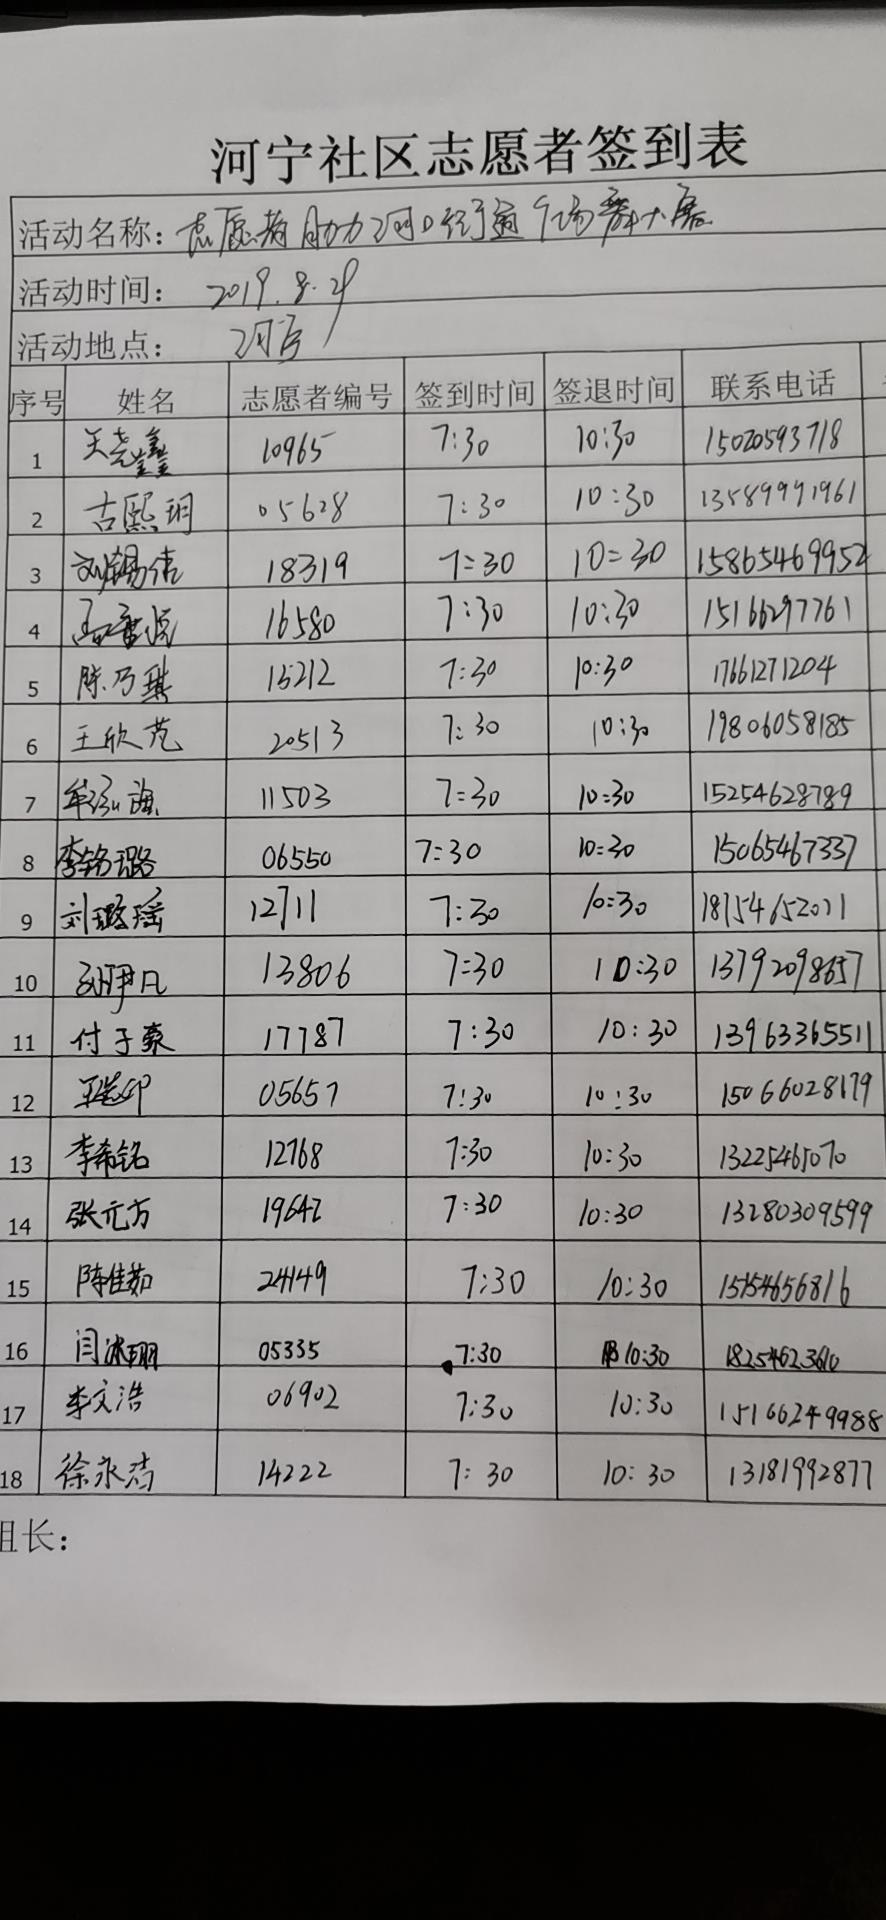 河宁社区志愿者签到表
活动名称：志愿者助力河口街道广场舞大赛
活动时间：2019.8.29
活动地点：河宁
序号 姓名 志愿者编号 签到时间 签退时间 联系电话
1 10965 7:30 10:30 15020593718
2 古熙玥 05628 7:30 10:30 13589991961
3 刘锡倩 18319 7:30 10:30 15865469952
4 16580 7:30 10:30 15166297761
5 陈乃琪 15212 7:30 10:30 17661271204
6 王欣范 20513 7:30 10:30 19806058185
7 11503 7:30 10:30 15254628789
8 李铭璐 06550 7:30 10:30 15065467337
9 刘璐瑶 12711 7:30 10:30 18754652021
10 13806 7:30 10:30 13792098657
11 付子豪 17787 7:30 10:30 13963365511
12 05657 7:30 10:30 15066028179
13 李希铭 12768 7:30 10:30 13225465070
14 张元方 19642 7:30 10:30 13280309599
15 陈佳茹 24149 7:30 10:30 15154656816
16 05335 7:30 10:30 18254623610
17 李文浩 06902 7:30 10:30 15166249988
18 徐永洁 14222 7:30 10:30 13181992877
组长：